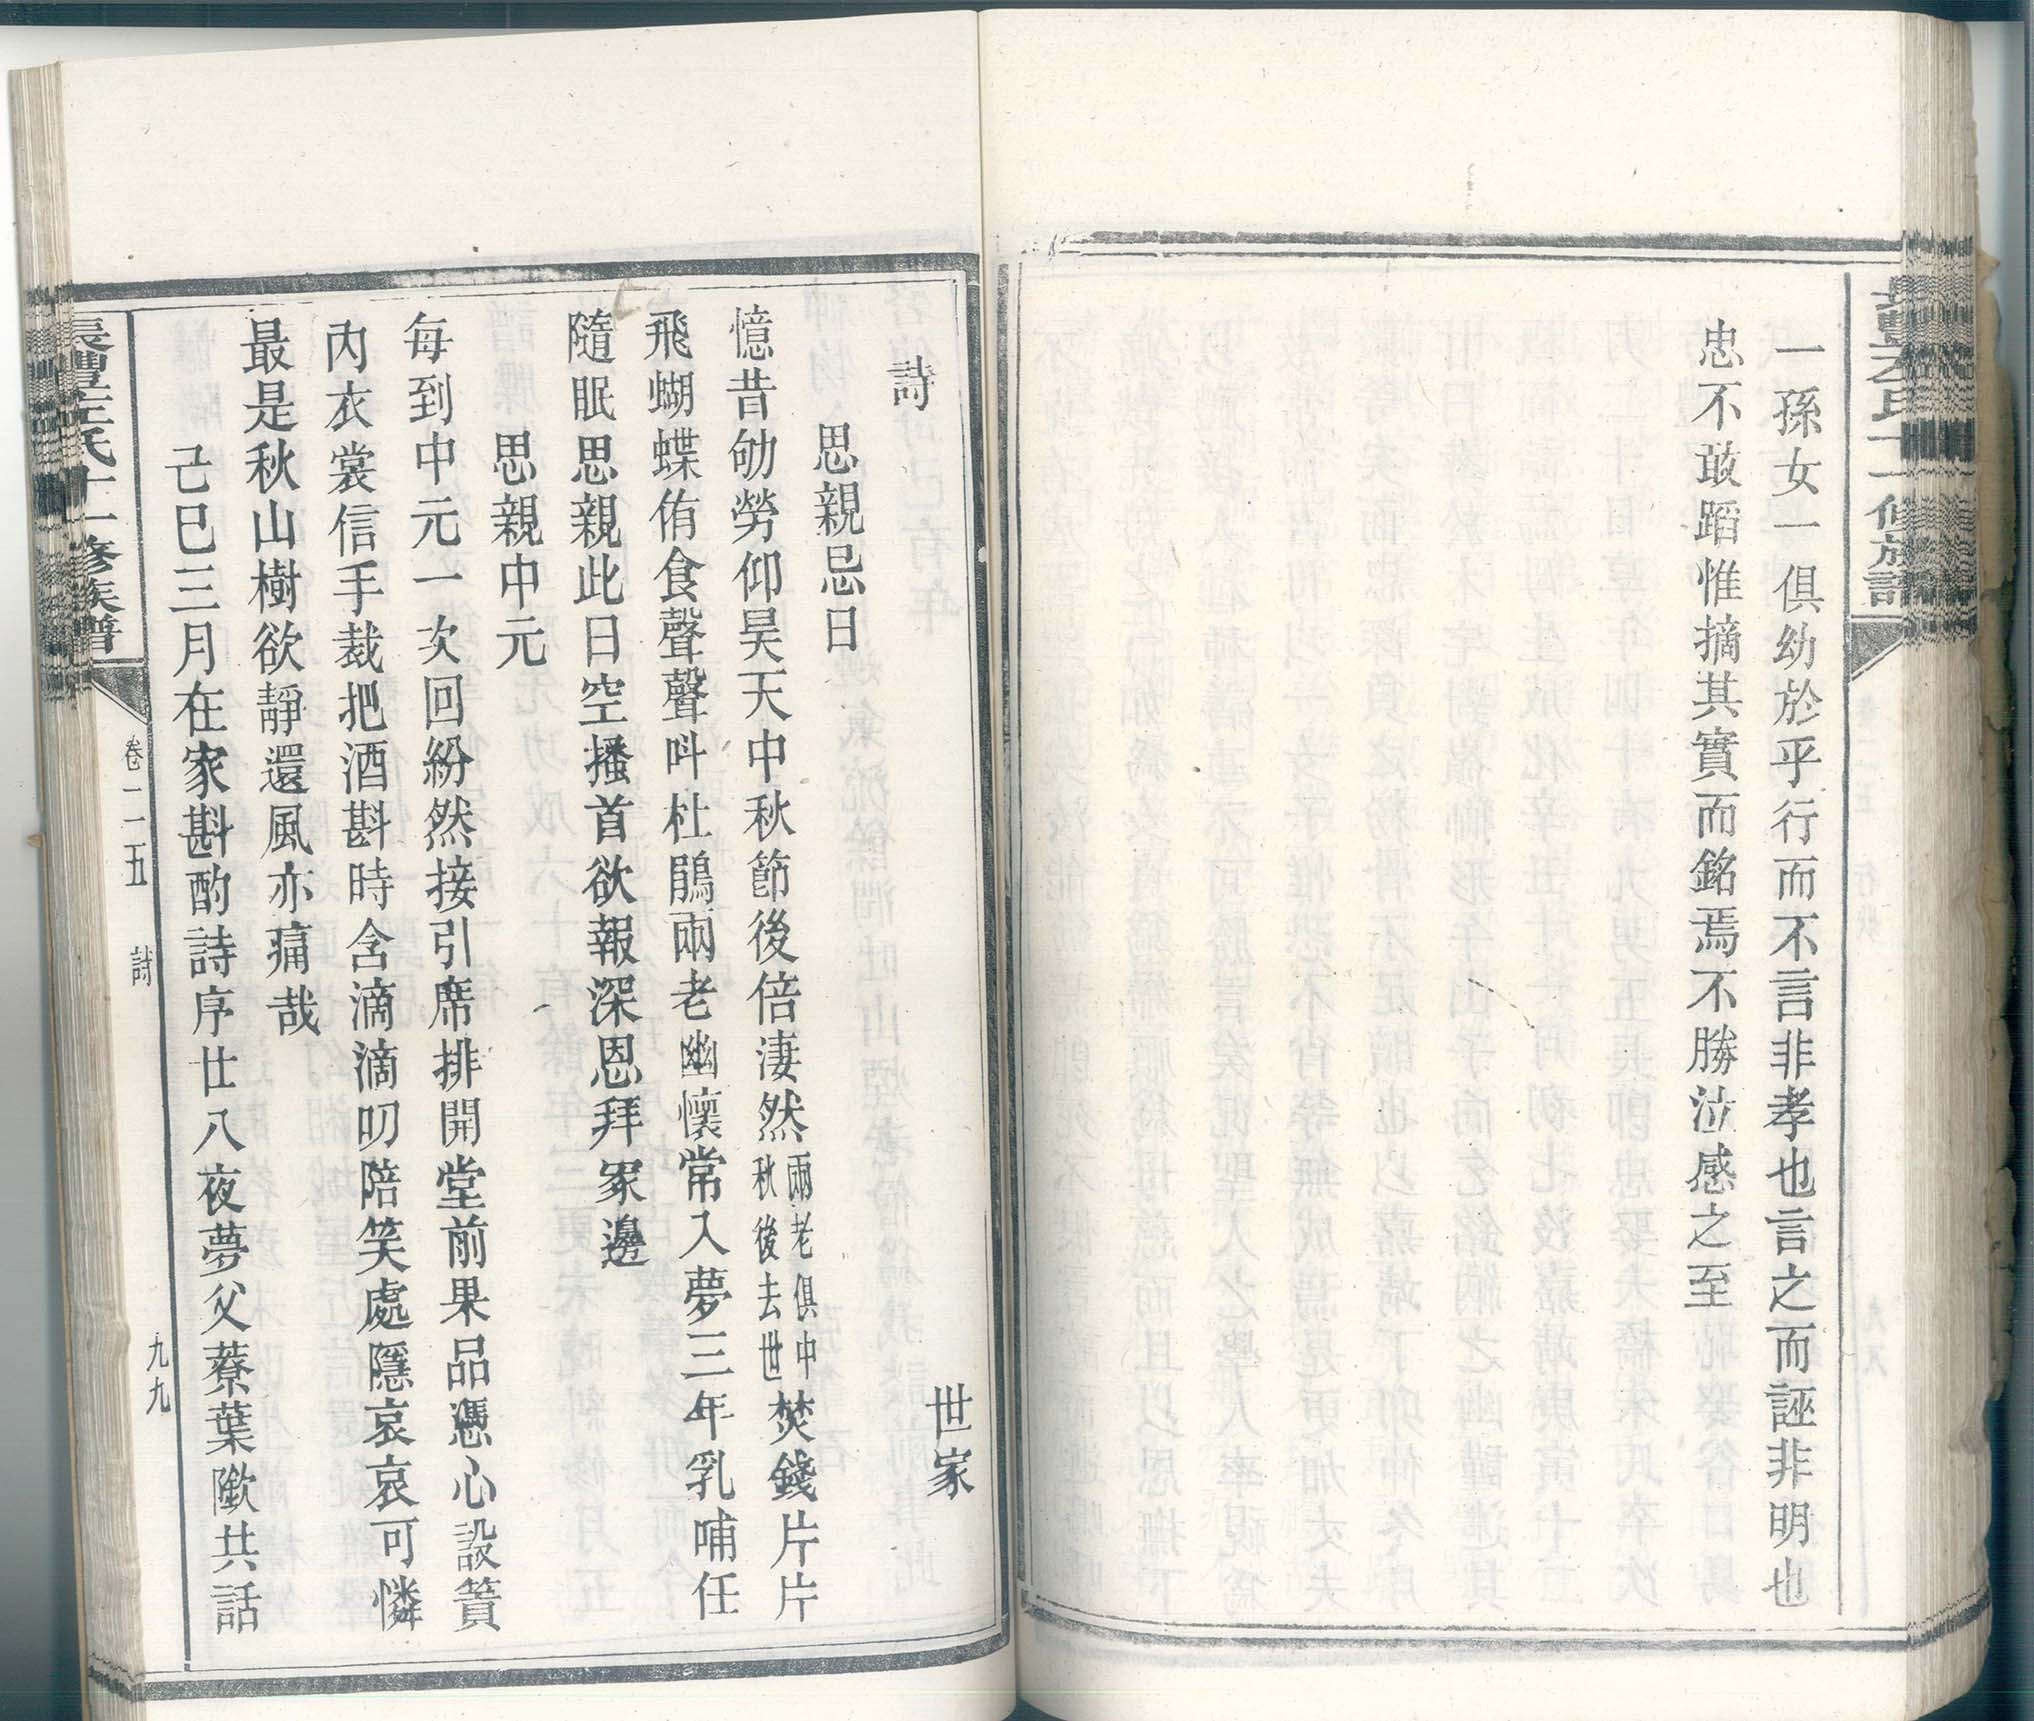 一孫女一俱幼於乎行而不言非孝也言之而誣非明也
忠不敢蹈惟摘其實而銘焉不勝泣感之至
詩
世家
思親忌日
憶昔劬勞仰昊天中秋節後倍淒然兩老俱中秋後去世焚錢片片
飛蝴蝶侑食聲聲呌杜鵑兩老幽懷常入夢三年乳哺任
隨眠思親此日空搔首欲報深恩拜冢邊
思親中元
每到中元一次回紛然接引席排開堂前果品憑心設簣
內衣裳信手裁把酒斟時含滴滴叨陪笑處隱哀哀可憐
最是秋山樹欲靜還風亦痛哉
己巳三月在家斟酌詩序廿八夜夢父藔葉歟共話
氏十一修族譜
卷一二五
詩
九九